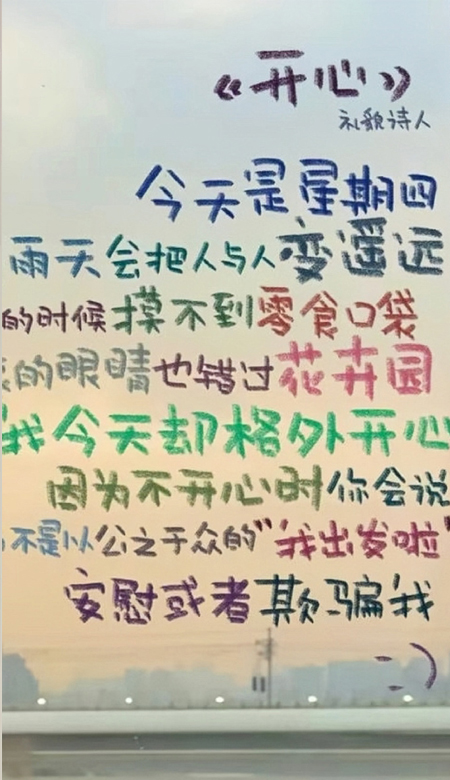 《开心》
礼貌诗人
今天是星期四
雨天会把人与人变遥远
的时候摸不到零食口袋
的眼睛也错过花卉园
我今天却格外开心
因为不开心时你会说
不是以公之于众的"我出发啦"
安慰或者欺骗我
:)